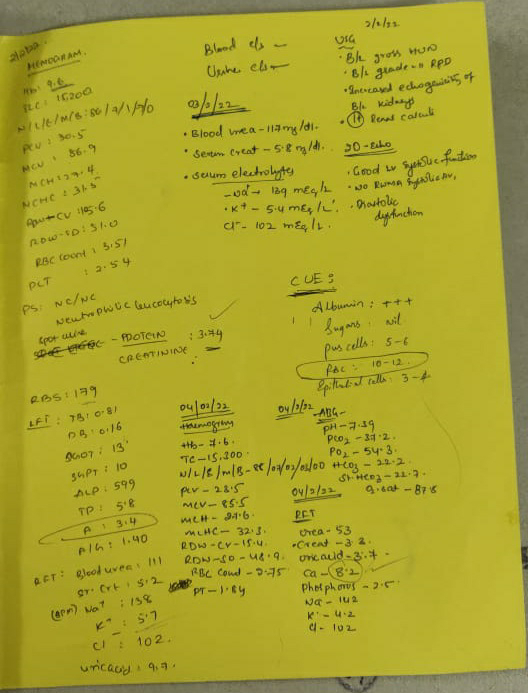 2/2/22
HEMOGRAM.
Hb: 9.6
TLC: 15200
N/L/E/M/B: 86/7/1/7/0
PCV: 30.5
MCV: 86.9
MCH: 27.4
MCHC: 31.5
RDW-CV: 15.6
RDW-SD: 51.0
RBC count: 3.51
PLT: 2.54
PS: NC/NC
Neutrophilic leucocytosis
Spot urine
- PROTEIN : 3.74
CREATININE
RBS: 179
LFT: TB: 0.81
DB: 0.16
SGOT: 13
SGPT: 10
ALP: 599
TP: 5.8
A: 3.4
A/G: 1.40
RFT: Blood urea: 111
Sr. Crt: 5.2
Na+: 138
K+: 5.7
Cl: 102.
Uric acid: 9.7.
Blood c/s -
Urine c/s -
03/2/22
• Blood urea - 117 mg/dl.
• Serum creat - 5.8 mg/dl.
• Serum electrolytes
- Na+ → 139 mEq/L
• K+ - 5.4 mEq/L
Cl- - 102 mEq/L.
2/2/22
USG
• B/L gross HUN
• B/L grade - II RPD
• Increased echogenicity of
B/L kidneys
Renal calculi
2D-Echo
• Good LV systolic function
• No RWMA
• Diastolic
dysfunction
CUE:
Albumin: +++
Sugars: nil
Pus cells: 5-6
RBC: 10-12.
Epithelial cells: 3-4
04/02/22
Haemogram
Hb - 7.6.
TC - 15,300.
N/L/E/M/B - 88/07/02/03/00
PCV - 23.5
MCV - 85.5
MCH - 27.6
MCHC - 32.3
RDW-CV - 15.4
RDW-SD - 48.9.
RBC Count - 2.75
PT - 1.84
04/2/22 - ABG -
PH - 7.39
PCO2 - 37.2.
PO2 - 54.3.
HCO3 - 22.2
St. HCO3 - 22.7.
O. sat - 87.8
04/2/22
RFT
Urea - 53
• Creat - 3.3.
Uric acid - 3.7.
Ca - 8.2
Phosphorus - 2.5.
Na - 142
K - 4.2
Cl - 102